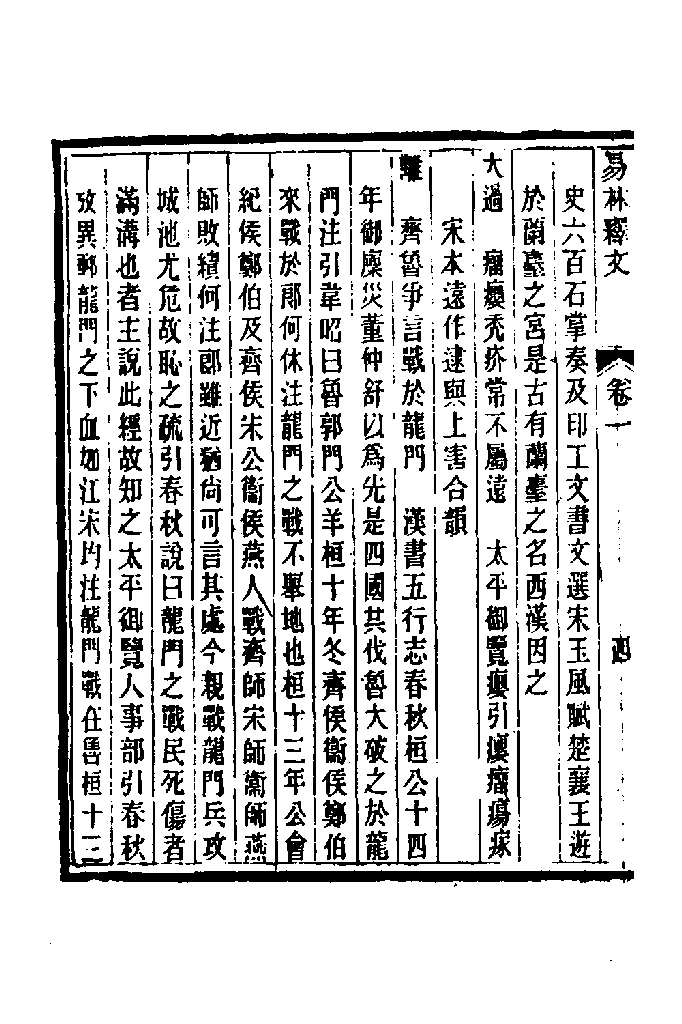 易林釋文 卷一 四
史六百石掌奏及印工文書文選宋玉風賦楚襄王遊
於蘭臺之宮是古有蘭臺之名西漢因之
大過 瘤癭禿疥常不屬逮 太平御覽癭引癭瘤瘍疥
宋本遠作逮與上害合韻
離 齊魯爭言戰於龍門 漢書五行志春秋桓公十四
年御廩災董仲舒以為先是四國共伐魯大破之於龍
門注引韋昭曰魯郭門公羊桓十年冬齊侯衞侯鄭伯
來戰於郎何休注龍門之戰不舉地也桓十三年公會
紀侯鄭伯及齊侯宋公衞侯燕人戰齊師宋師衞師燕
師敗績何注郎雖近猶尚可言其處今親戰龍門兵攻
城池尤危故恥之疏引春秋說曰龍門之戰民死傷者
滿溝也者主說此經故知之太平御覽人事部引春秋
攷異郵龍門之下血如江宋均注龍門戰在魯桓十三